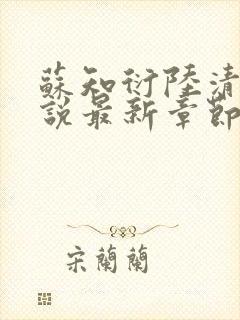 蘇知衍陸清
說最新章節
宋蘭蘭